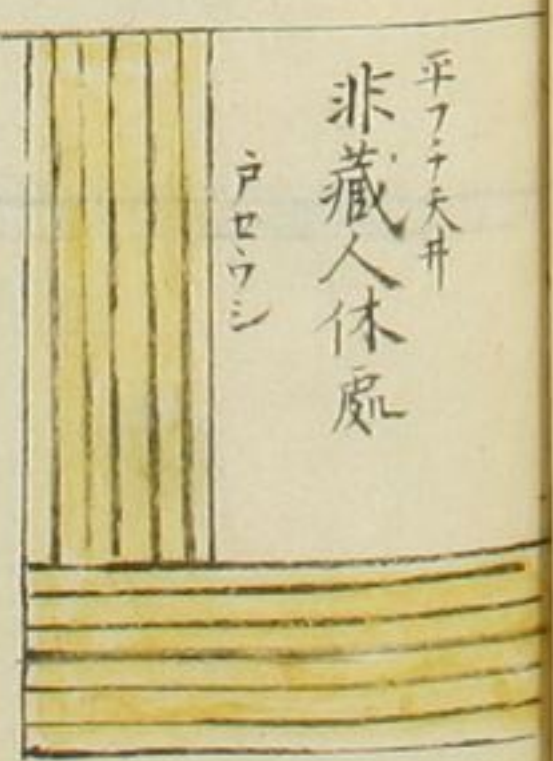 平フチ天井
非藏人休處
戸セウシ